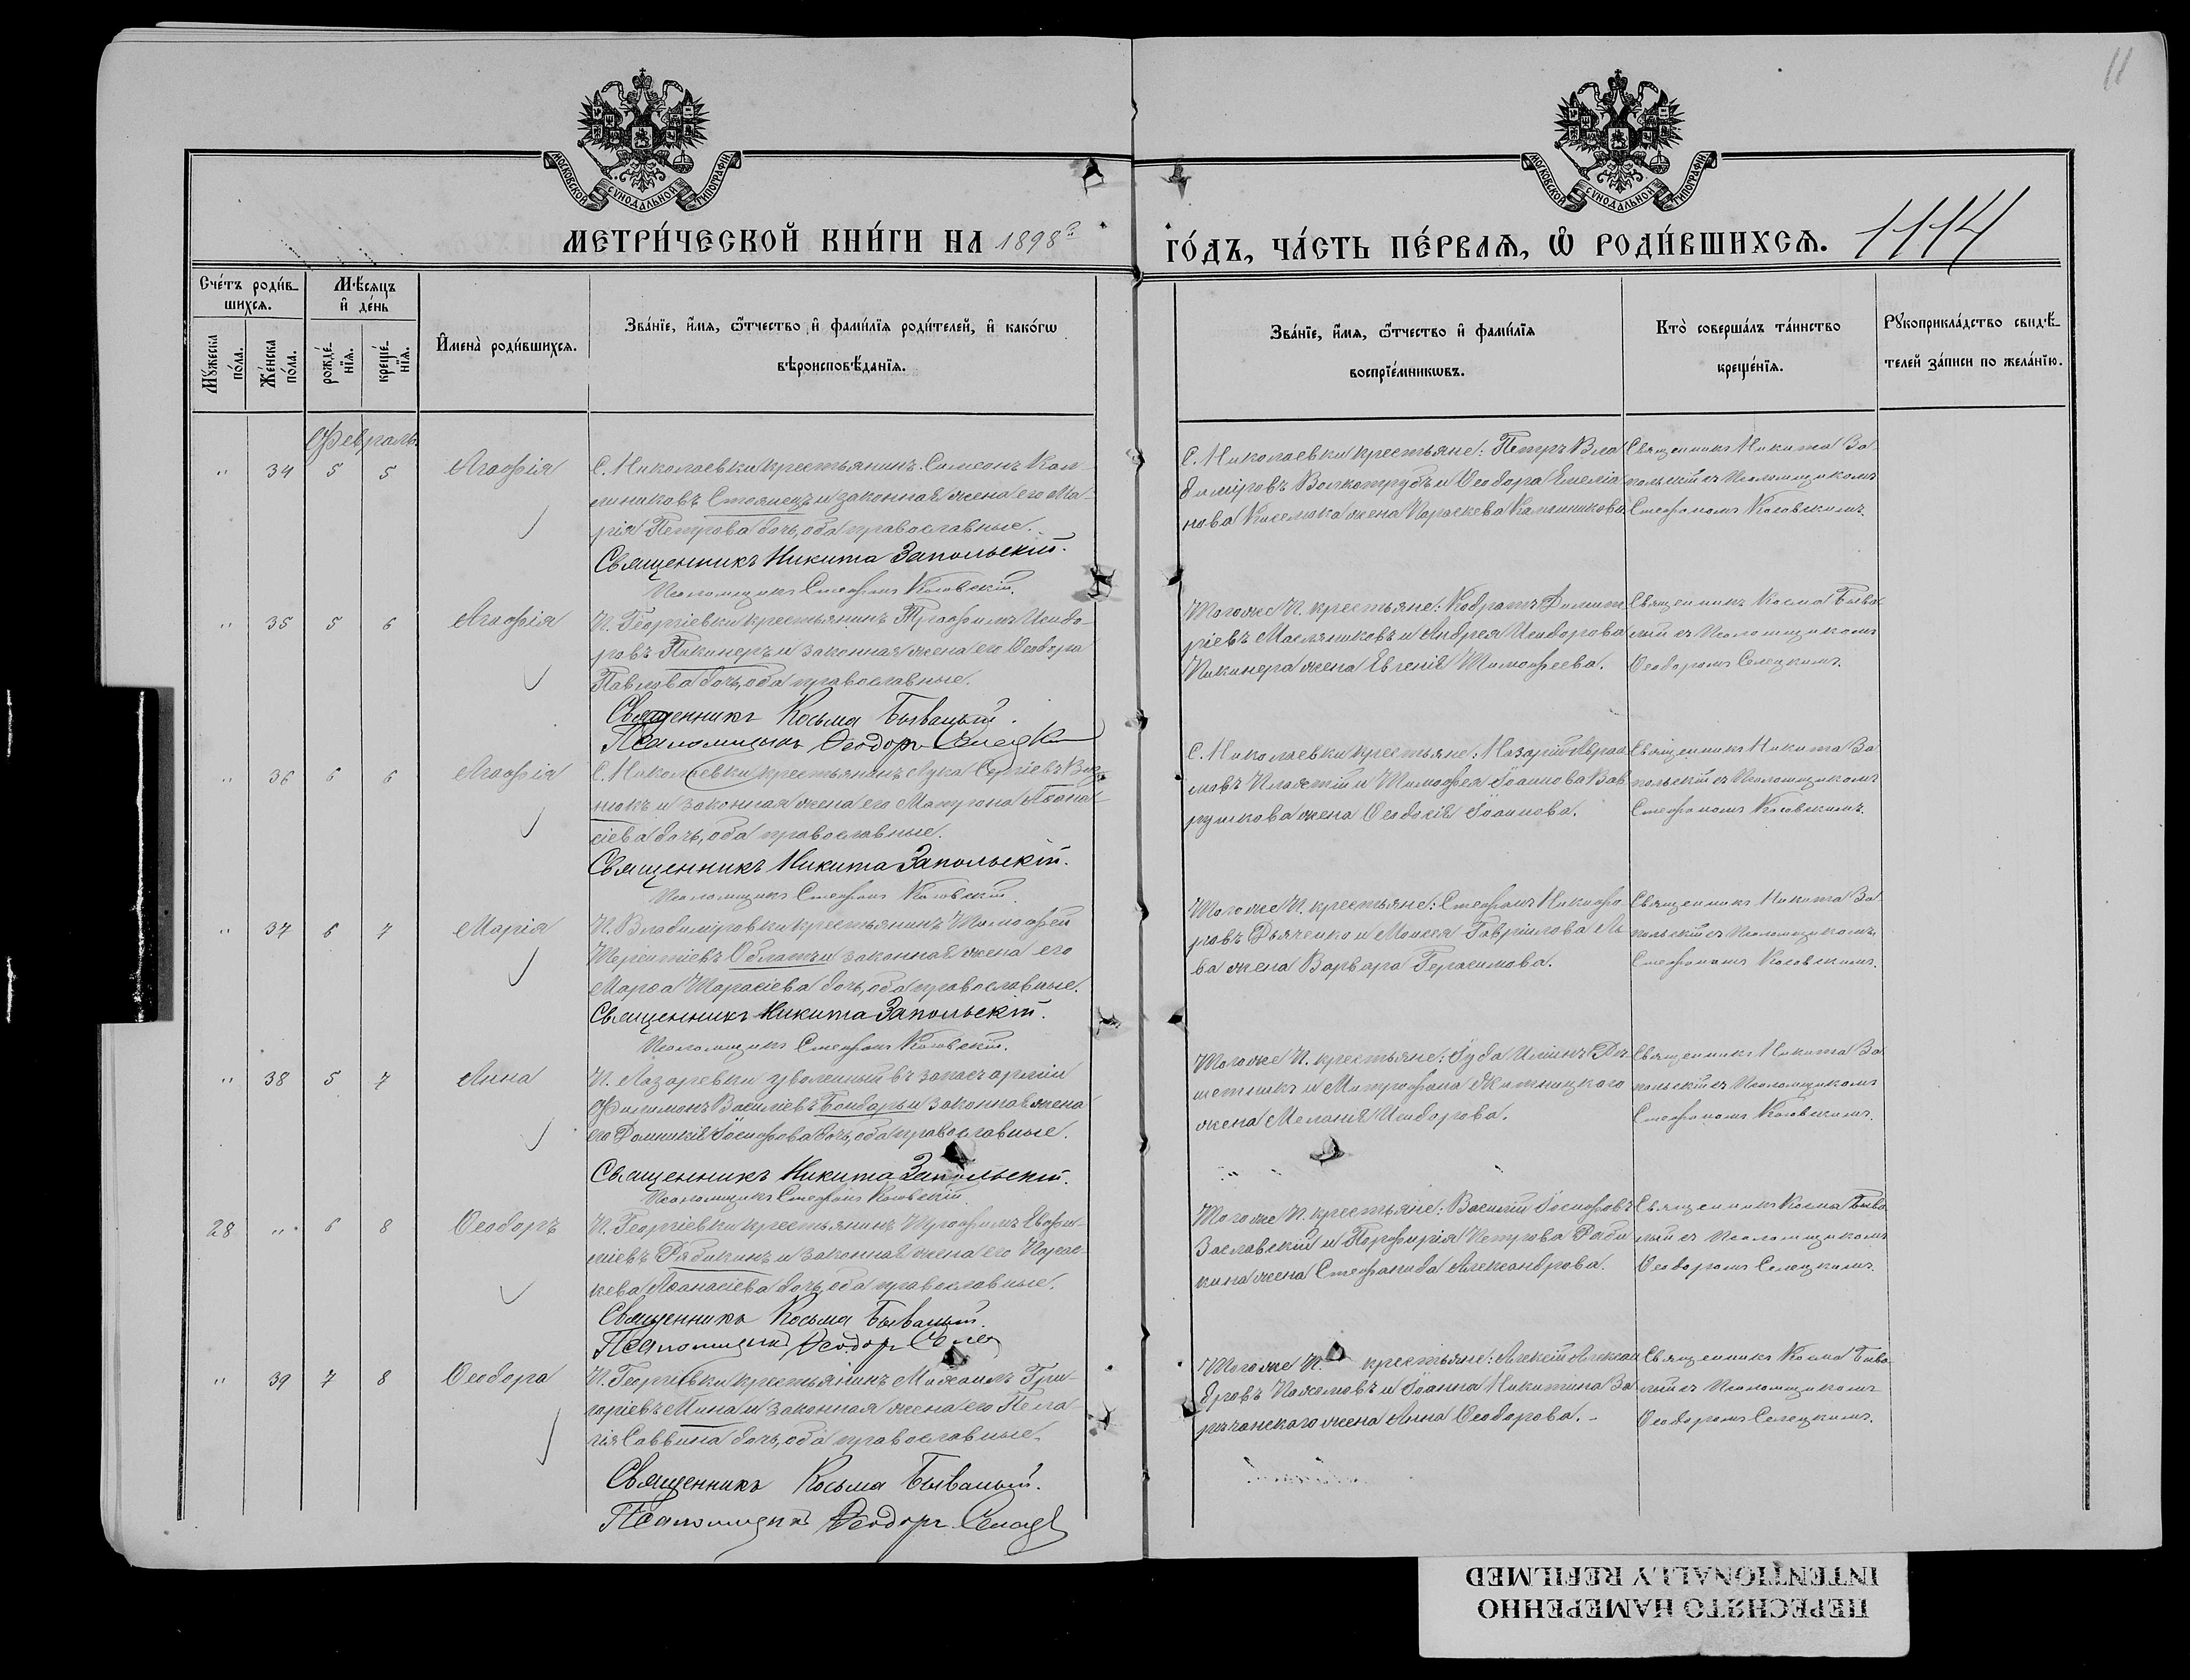 11
МОСКОВСКОЙ СѴНОДАЛЬНОЙ ТИПОГРАФІИ
МОСКОВСКОЙ СѴНОДАЛЬНОЙ ТИПОГРАФІИ
МЕТРИ́ЧЕСКОЙ КНИ́ГИ НА 1898 ГО́ДЪ, ЧА́СТЬ ПЕ́РВАЯ, Ѡ҆ РОДИ́ВШИХСЯ. 1114
Сче́тъ роди́в-
шихся.
Мꙋ́жеска по́ла.
Же́нска по́ла.
Мѣ́сяцъ и҆ де́нь
рожде́-
нїя.
креще́-
нїя.
И҆мена̀ роди́вшихся.
Зва́нїе, и҆́мя, ѻ҆́тчество и҆ фами́лїя роди́телей, и҆ како́гѡ
вѣроисповѣ́данїя.
Зва́нїе, и҆́мя, ѻ҆́тчество и҆ фами́лїя
воспрїе́мникѡвъ.
Кто̀ соверша́лъ та́инство
креще́нїя.
Рꙋкоприкла́дство свидѣ́-
телей за́писи по жела́нїю.
Февраль
" 34 5 5 Агафія
С. Николаевки крестьянинъ Симеонъ Кал-
линиковъ Стоянецъ и законная жена его Ма-
рія Петрова дочь, оба православные.
Священникъ Никита Запольскій.
Псаломщикъ Стефанъ Косовскій.
С. Николаевки крестьяне: Петръ Вла
диміровъ Волкотрубъ и Ѳеодора Емелiа
нова жена Параскева Каллиникова
Священникъ Никита За
польскій съ Псаломщикомъ
Стефаномъ Косовскимъ.
" 35 5 6 Агафія
П. Георгіевки крестьянинъ Трофимъ Исидо-
ровъ Пикинеръ и законная жена его Ѳеодора
Павлова дочь, оба православные.
Священникъ Косьма Бывалый.
Псаломщикъ Ѳеодоръ
Тогоже П. крестьяне: Кодратъ Димит
ріевъ Масляниковъ и Андрея Исидорова
Пикинера жена Евгенія Тимофеева.
Священникъ Косма Быва
лый съ Псаломщикомъ
Ѳеодоромъ Селецкимъ.
" 36 6 6 Агафія
С. Николаевки крестьянинъ Лука Сергіевъ
и законная жена его Матрона Аѳана
сіева дочь, оба православные.
Священникъ Никита Запольскій.
Псаломщикъ Стефанъ Косовскій.
С. Николаевки крестьяне: Назарій Авраа
мовъ и Тимофея Іоаннова Вав
рушкова жена Ѳеодосія Іоаннова.
Священникъ Никита За
польскій съ Псаломщикомъ
Стефаномъ Косовскимъ.
" 37 6 7 Марія
П. Владиміровки крестьянинъ Тимофей
Терентіевъ и законная жена его
Марѳа Тарасіева дочь, оба православные.
Священникъ Никита Запольскій.
Псаломщикъ Стефанъ Косовскій.
Тогоже П. крестьяне: Стефанъ Никифо
ровъ Дьяченко и Моисея Гавріилова Ль
ва жена Варвара Герасимова.
Священникъ Никита За
польскій съ Псаломщикомъ
Стефаномъ Косовскимъ.
" 38 5 7 Анна
П. Лазаревки уволенный въ запасъ арміи
Филимонъ Василіевъ Бондарь и законная жена
его Домникія Іосифова дочь, оба православные.
Священникъ Никита Запольскій.
Псаломщикъ Стефанъ Косовскій.
Тогоже П. крестьяне: Іуда Ре
шетникъ и Митрофана Житницкаго
жена Меланія Исидорова.
Священникъ Никита За
польскій съ Псаломщикомъ
Стефаномъ Косовскимъ.
28 " 6 8 Ѳеодоръ
П. Георгіевки крестьянинъ Трофимъ Евфи-
міевъ Рябикинъ и законная жена его Парас-
кева Аѳанасіева дочь, оба православные.
Священникъ Косьма Бывалый.
Псаломщикъ Ѳеодоръ
Тогоже П. крестьяне: Василій Іосифовъ
Заславскій и Порфирія Петрова Ряби
кина жена Стефанида Александрова.
Священникъ Косма Быва
лый съ Псаломщикомъ
Ѳеодоромъ Селецкимъ.
" 39 7 8 Ѳеодора
П. Георгіевки крестьянинъ Михаилъ Гри-
горіевъ Мина и законная жена его Пела
гія Саввина дочь, оба православные.
Священникъ Косьма Бывалый.
Псаломщикъ Ѳеодоръ
Тогоже П. крестьяне: Алексій Алексан
дровъ Пахомовъ и Іоанна Никитина За
рѣчанскаго жена Анна Ѳеодорова.
Священникъ Косма Быва
лый съ Псаломщикомъ
Ѳеодоромъ Селецкимъ.
ПЕРЕСНЯТО НАМЕРЕННО
INTENTIONALLY REFILMED